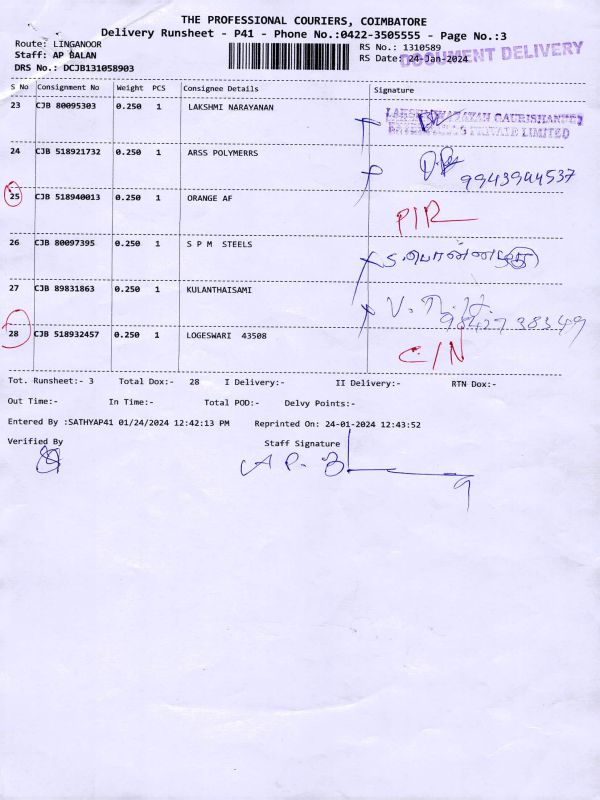 THE PROFESSIONAL COURIERS, COIMBATORE
Delivery Runsheet - P41 - Phone No.:0422-3505555 - Page No.:3
Route: LINGANOOR
RS No.: 1310589
Staff: AP BALAN
RS Date: 24-Jan-2024
DOCUMENT DELIVERY
DRS No.: DCJB131058903
S No Consignment No Weight PCS Consignee Details Signature
23 CJB 80095303 0.250 1 LAKSHMI NARAYANAN
PRIVATE LIMITED
24 CJB 518921732 0.250 1 ARSS POLYMERRS
9943944537
25 CJB 518940013 0.250 1 ORANGE AF
P/R
26 CJB 80097395 0.250 1 S P M STEELS
27 CJB 89831863 0.250 1 KULANTHAISAMI
9842738349
28 CJB 518932457 0.250 1 LOGESWARI 43508
C/N
Tot. Runsheet:- 3 Total Dox:- 28 I Delivery:- II Delivery:- RTN Dox:-
Out Time:- In Time:- Total POD:- Delvy Points:-
Entered By :SATHYAP41 01/24/2024 12:42:13 PM Reprinted On: 24-01-2024 12:43:52
Verified By Staff Signature
A P. B